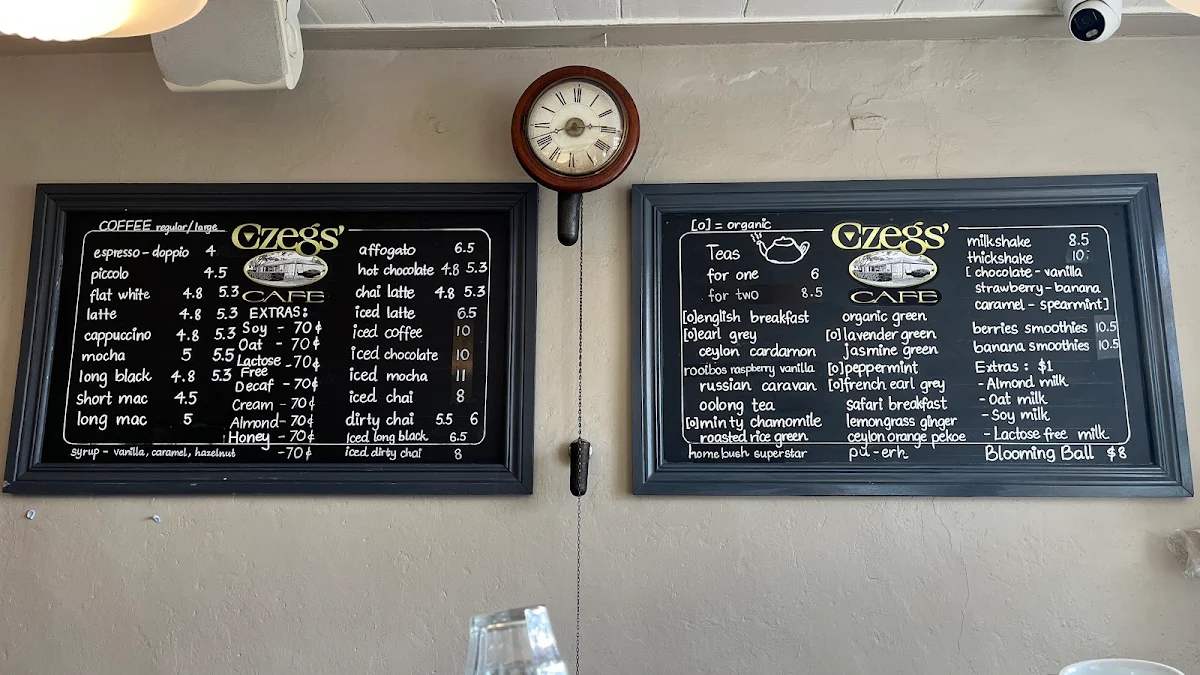 COFFEE regular/large
Czegs'
CAFE
espresso-doppio 4
piccolo 4.5
flat white 4.8 5.3
latte 4.8 5.3
cappuccino 4.8 5.3
mocha 5 5.5
long black 4.8 5.3
short mac 4.5
long mac 5
EXTRAS:
Soy - 70¢
Oat - 70¢
Lactose Free - 70¢
Decaf - 70¢
Cream - 70¢
Almond - 70¢
Honey - 70¢
syrup - vanilla, caramel, hazelnut -70¢
affogato 6.5
hot chocolate 4.8 5.3
chai latte 4.8 5.3
iced latte 6.5
iced coffee 10
iced chocolate 10
iced mocha 11
iced chai 8
dirty chai 5.5 6
Iced long black 6.5
iced dirty chai 8
[o] = organic
Czegs'
CAFE
Teas
for one 6
for two 8.5
[o]english breakfast
[o]earl grey
ceylon cardamon
rooibos raspberry vanilla
russian caravan
oolong tea
[o]minty chamomile
roasted rice green
homebush superstar
organic green
[o]lavender green
jasmine green
[o]peppermint
[o]french earl grey
safari breakfast
lemongrass ginger
ceylon orange pekoe
pu-erh
milkshake 8.5
thickshake 10
[chocolate - vanilla
strawberry - banana
caramel - spearmint]
berries smoothies 10.5
banana smoothies 10.5
Extras : $1
- Almond milk
- Oat milk
- Soy milk
- Lactose free milk
Blooming Ball $8
XII